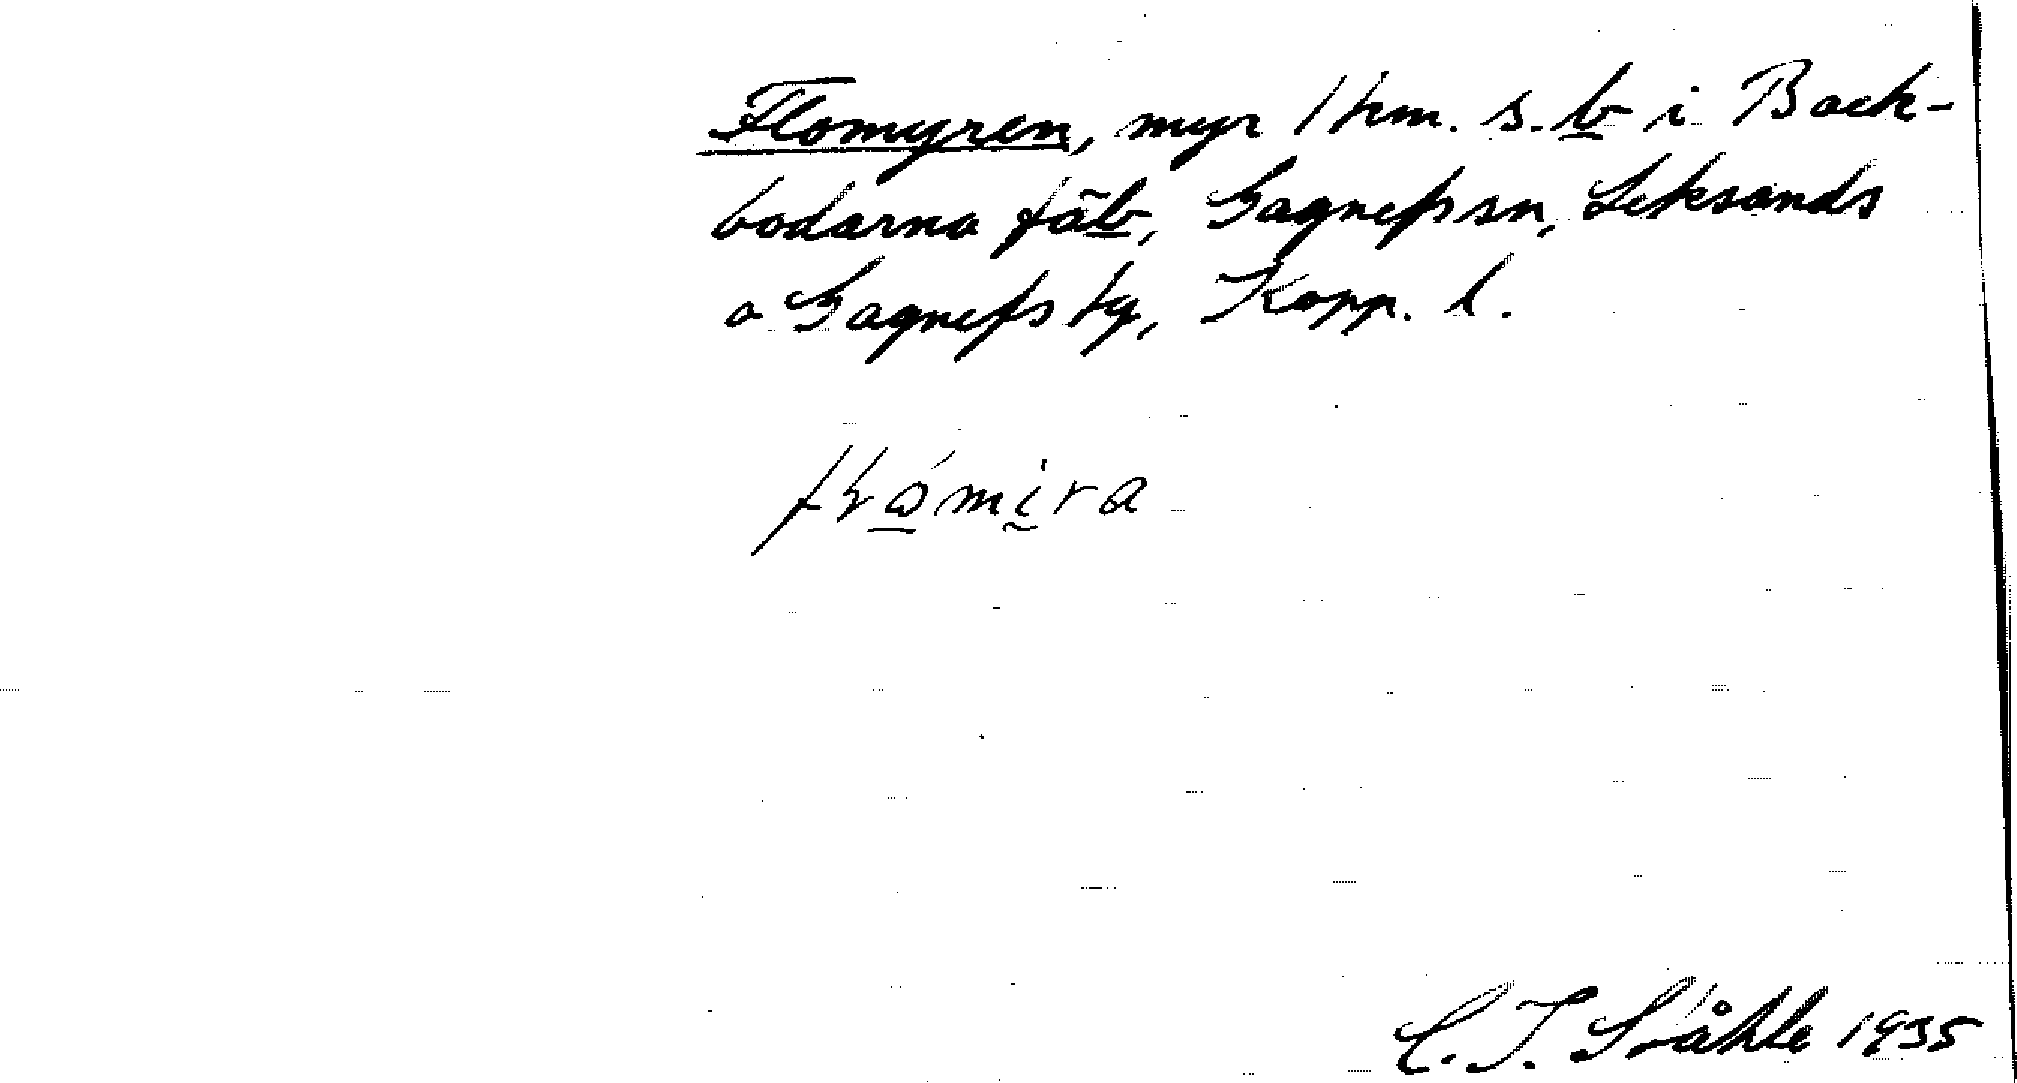 Flomyren, myr 1 km. s. b i Back-
bodarna fäb, Gagnefs sn, Leksands
o Gagnefs tg, Kopp. l.
C. I. Ståhle 1935